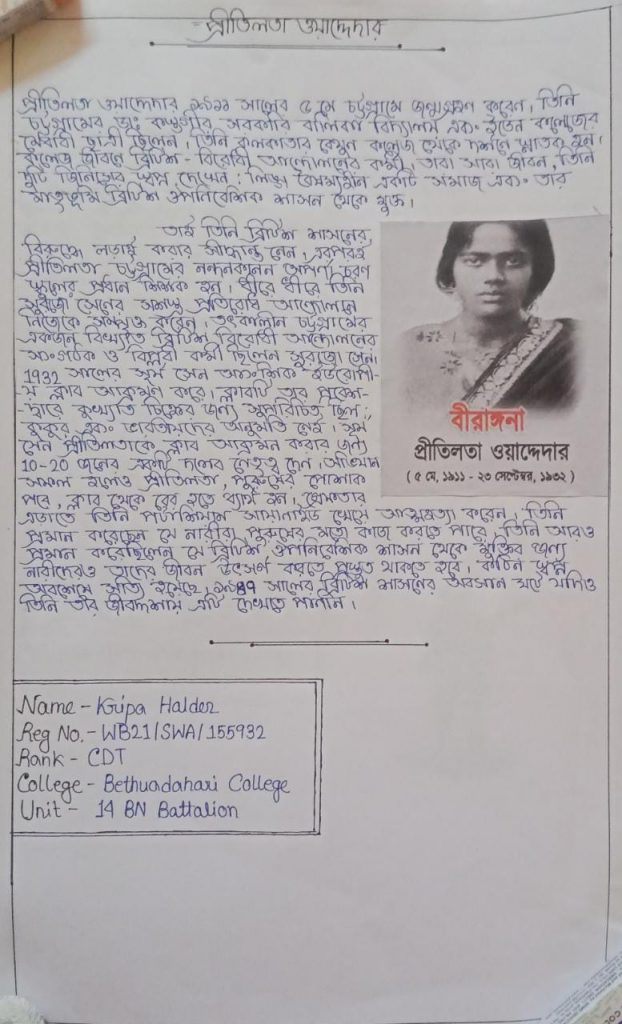 প্রীতিলতা ওয়াদ্দেদার
প্রীতিলতা ওয়াদ্দেদার ১৯১১ সালের ৫ মে চট্টগ্রামে জন্মগ্রহন করেন। তিনি
চট্টগ্রামের ডঃ খাস্তগীর সরকারি বালিকা বিদ্যালয় এবং ইডেন কলেজের
মেধাবী ছাত্রী ছিলেন। তিনি কলকাতার বেথুন কলেজ থেকে দর্শনে স্নাতক হন।
কলেজ জীবনে ব্রিটিশ-বিরোধী আন্দোলনের কর্মী। তারা সারা জীবন, তিনি
দুটি জিনিসের স্বপ্ন দেখেন: লিঙ্গ বৈষম্যহীন একটি সমাজ এবং তার
মাতৃভূমি ব্রিটিশ ঔপনিবেশিক শাসন থেকে মুক্ত।
তাই তিনি ব্রিটিশ শাসনের
বিরুদ্ধে লড়াই করার সিদ্ধান্ত নেন। এরপরই
প্রীতিলতা চট্টগ্রামের নন্দনকানন অপর্ণা চরণ
স্কুলের প্রধান শিক্ষক হন। ধীরে ধীরে তিনি
সূর্য সেনের সশস্ত্র প্রতিরোধ আন্দোলনে
নিজেকে সম্পৃক্ত করেন। তৎকালীন চট্টগ্রামের
একজন বিখ্যাত ব্রিটিশ বিরোধী আন্দোলনের
সংগঠক ও বিপ্লবী কর্মী ছিলেন সূর্য সেন।
1932 সালে সূর্য সেন ইউরোপী-
য় ক্লাব আক্রমণ করে। ক্লাবটি তার প্রবেশ-
-দ্বারে কুখ্যাত চিহ্নের জন্য সুপরিচিত ছিল:
কুকুর এবং ভারতীয়দের অনুমতি নেই। সূর্য
সেন প্রীতিলতাকে ক্লাব আক্রমন করার জন্য
10-20 জনের একটি দলের নেতৃত্ব দেন। অভিযান
সফল হলেও প্রীতিলতা, পুরুষের পোশাক
পরে, ক্লাব থেকে বের হতে ব্যর্থ হন। গ্রেফতার
এড়াতে তিনি পটাশিয়াম সায়ানাইড খেয়ে আত্মহত্যা করেন। তিনি
প্রমান করেছেন যে নারীরা পুরুষের মতো কাজ করতে পারে। তিনি আরও
প্রমান করেছিলেন যে ব্রিটিশ ঔপনিবেশিক শাসন থেকে মুক্তির জন্য
নারীদেরও তাদের জীবন উৎসর্গ করতে প্রস্তুত থাকতে হবে। স্বপ্ন
অবশেষে সত্যি হয়েছে। ১৯৪৭ সালের ব্রিটিশ শাসনের অবসান ঘটে যদিও
তিনি তার জীবদ্দশায় এটি দেখতে পাননি।
বীরাঙ্গনা
প্রীতিলতা ওয়াদ্দেদার
( ৫ মে, ১৯১১ - ২৩ সেপ্টেম্বর, ১৯৩২ )
Name - Kripa Halder
Reg No. - WB21/SWA/155932
Rank - CDT
College - Bethuadahari College
Unit - 14 BN Battalion